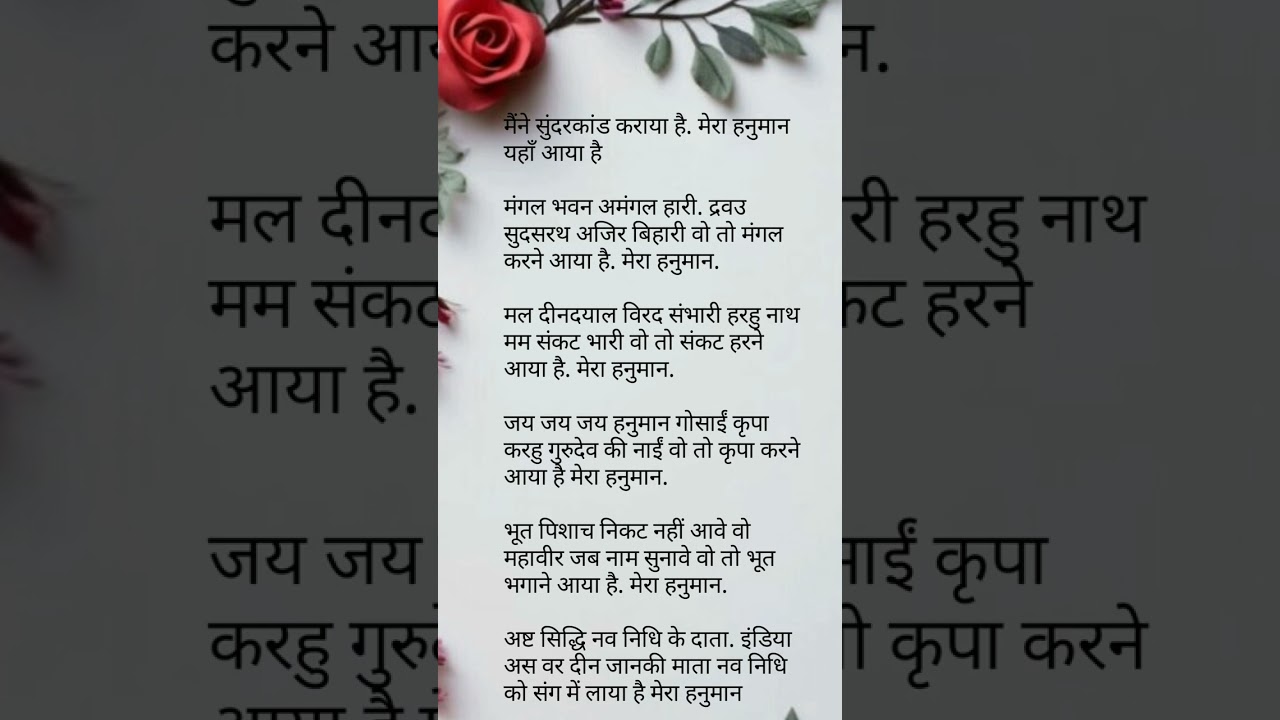 मैंने सुंदरकांड कराया है. मेरा हनुमान
यहाँ आया है
मंगल भवन अमंगल हारी. द्रवउ
सुदसरथ अजिर बिहारी वो तो मंगल
करने आया है. मेरा हनुमान.
मल दीनदयाल विरद संभारी हरहु नाथ
मम संकट भारी वो तो संकट हरने
आया है. मेरा हनुमान.
जय जय जय हनुमान गोसाईं कृपा
करहु गुरुदेव की नाईं वो तो कृपा करने
आया है मेरा हनुमान.
भूत पिशाच निकट नहीं आवे वो
महावीर जब नाम सुनावे वो तो भूत
भगाने आया है. मेरा हनुमान.
अष्ट सिद्धि नव निधि के दाता. इंडिया
अस वर दीन जानकी माता नव निधि
को संग में लाया है मेरा हनुमान